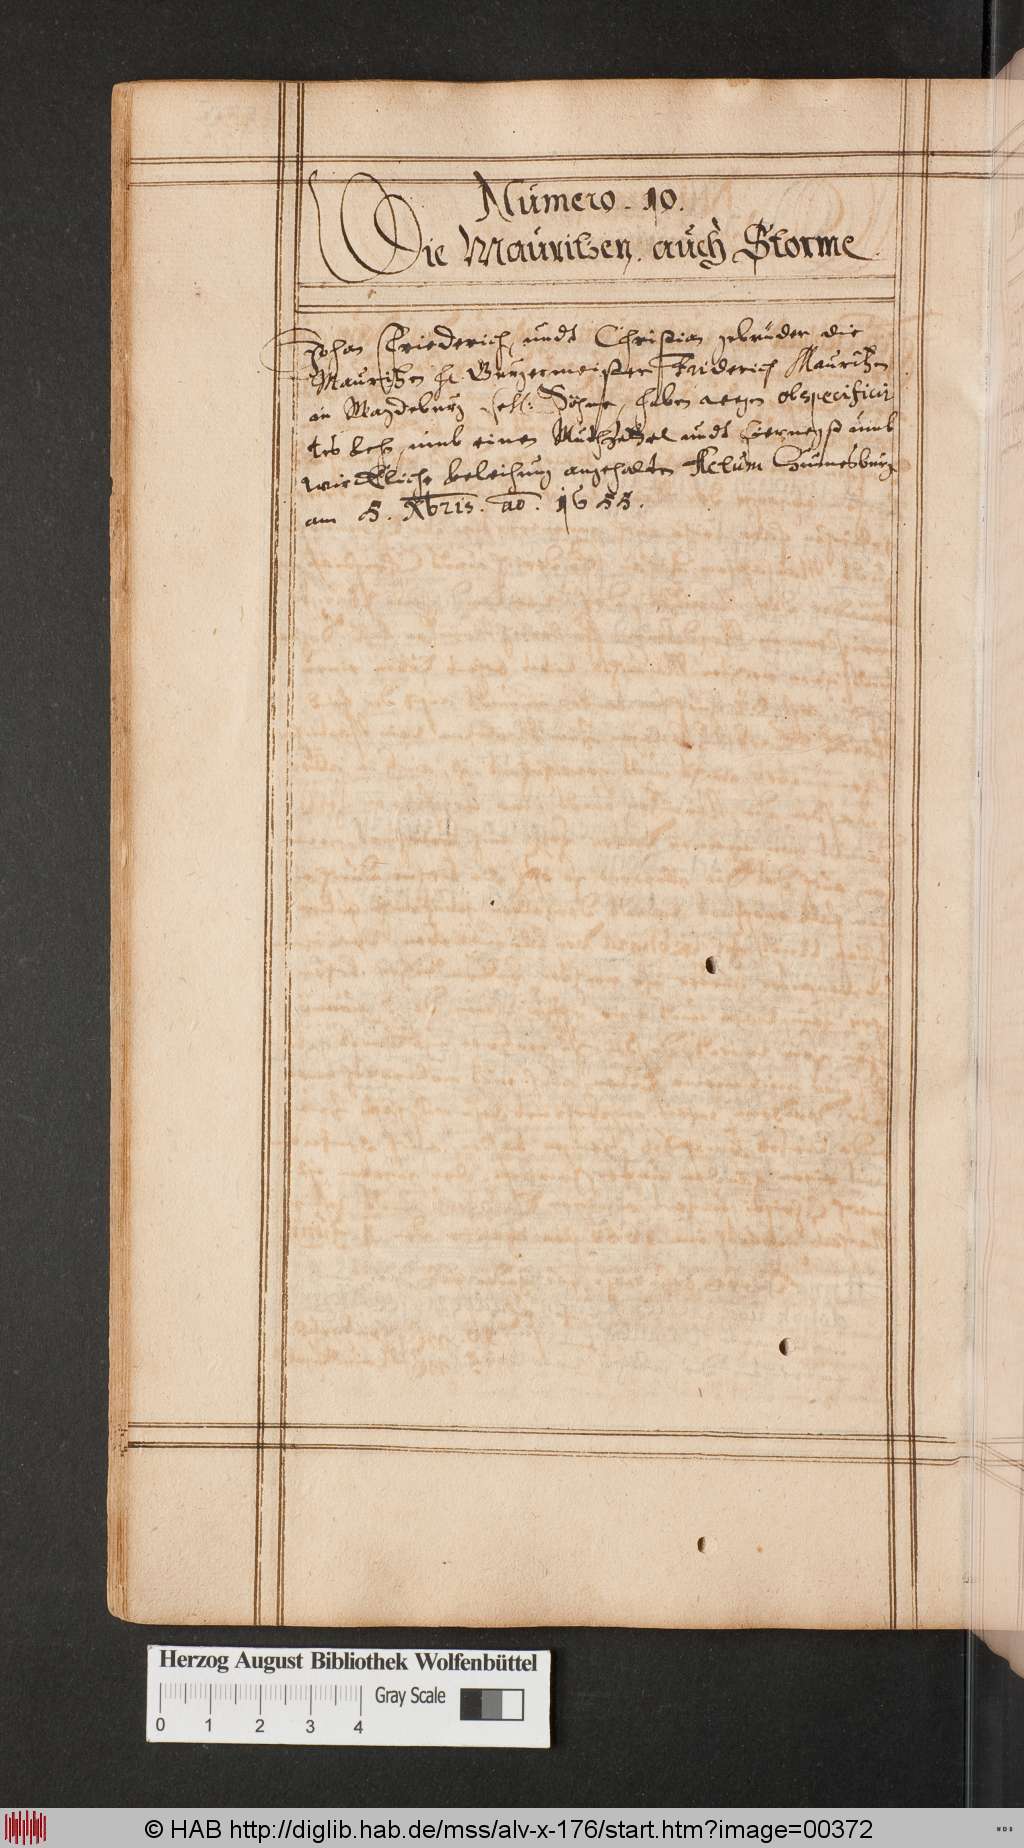 Numero. 10.
Die Mauritzen. auch Storme.
Johan Friederich, undt Christian gebrüder die
Mauritzen hl. Burgermeister Friderich Mauritzen
in Magdeburg Sehl: Söhne, haben wegen obspecificir
tes Leh, umb einen Muthzettel undt hiernegst umb
wirckliche beleihung angehalten Actum Hunnesburg
am 5. Xbris. ao. 1655.
Herzog August Bibliothek Wolfenbüttel
Gray Scale
0 1 2 3 4
© HAB http://diglib.hab.de/mss/alv-x-176/start.htm?image=00372